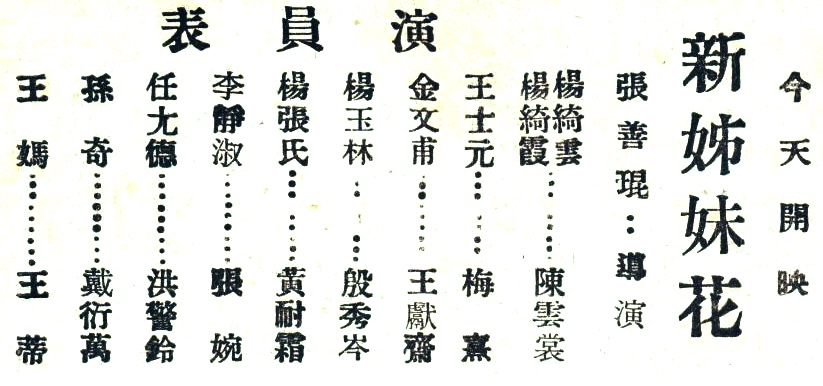 今天開映
新姊妹花
張善琨：導演
演員表
楊綺雲
楊綺霞……陳雲裳
王士元……梅熹
金文甫……王獻齋
楊玉林……殷秀岑
楊張氏……黃耐霜
李靜淑……張婉
任尤德……洪警鈴
孫奇……戴衍萬
王媽……王蒂